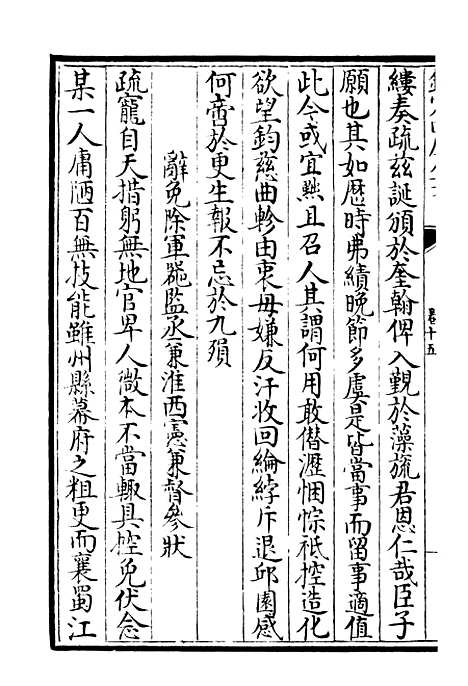 縷奏疏玆誕頒於奎翰俾入覲於藻旒君恩仁哉臣子
願也其如歴時弗績晩節多虞是皆當事而留事適值
此今或宜黙且召人其謂何用敢僭瀝悃悰祗控造化
欲望鈞慈曲軫由衷毋嫌反汗收回綸綍斥退邱園感
何啻於更生報不忘於九殞
辭免除軍器監丞兼淮西憲兼督參狀
疏寵自天措躬無地官卑人微本不當輙具控免伏念
某一人庸陋百無技能雖州縣幕府之粗更而襄蜀江
卷十五